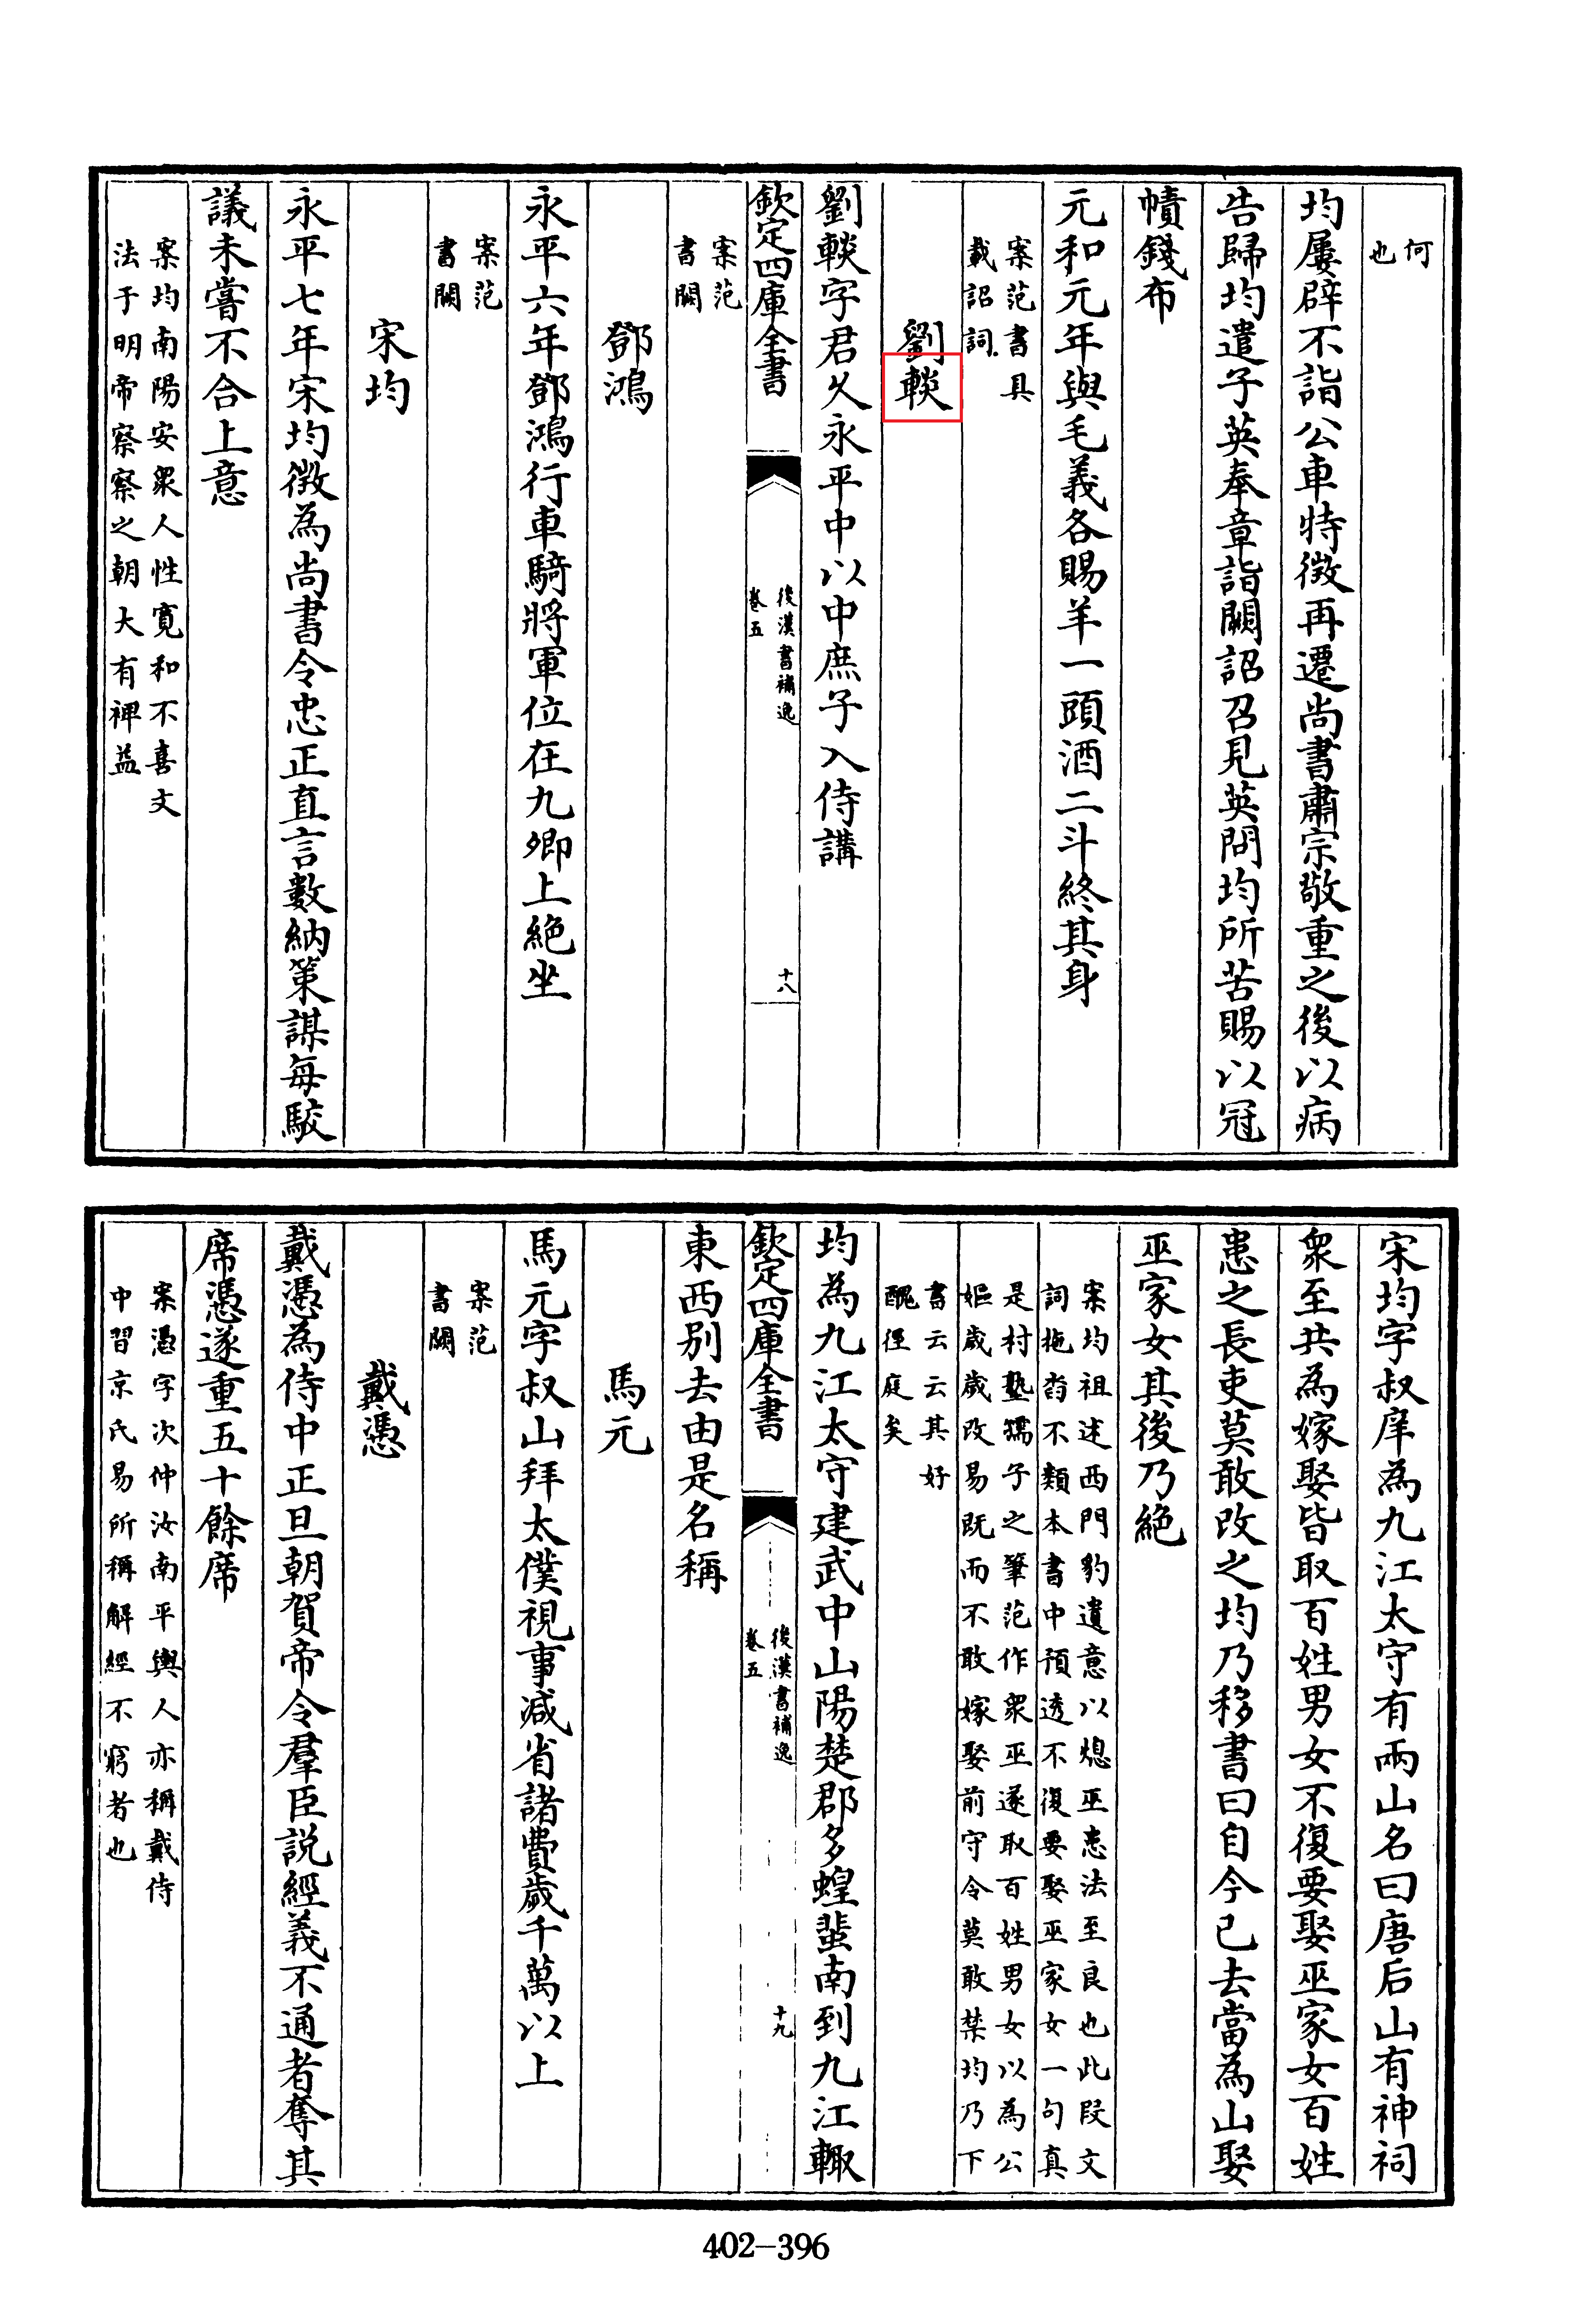 何
也
均屢辟不詣公車特徴再遷尚書肅宗敬重之後以病
告歸均遣子英奉章詣闕詔召見英問均所苦賜以冠
幘錢布
元和元年與毛義各賜羊一頭酒二斗終其身
案范書具
載詔詞
劉
劉字君久永平中以中庶子入侍講
欽定四庫全書
後漢書補逸
卷五
十八
案范
書闕
鄧鴻
永平六年鄧鴻行車騎將軍位在九卿上絶坐
案范
書闕
宋均
永平七年宋均徴為尚書令忠正直言數納策謀每駮
議未嘗不合上意
案均南陽安衆人性寛和不喜文
法于明帝察察之朝大有裨益
宋均字叔庠為九江太守有兩山名曰唐后山有神祠
衆至共為嫁娶皆取百姓男女不復要娶巫家女百姓
患之長吏莫敢改之均乃移書曰自今已去當為山娶
巫家女其後乃絶
案均祖述西門豹遺意以熄巫恚法至良也此叚文
詞拖沓不類本書中預透不復要娶巫家女一句真
是村塾獳子之筆范作衆巫遂取百姓男女以為公
嫗歳歳改易既而不敢嫁娶前守令莫敢禁均乃下
書云云其好
醜徑庭矣
均為九江太守建武中山陽楚郡多蝗蜚南到九江輙
欽定四庫全書
後漢書補逸
卷五
十九
東西别去由是名稱
馬元
馬元字叔山拜太僕視事減省諸費歲千萬以上
案范
書闕
戴憑
戴憑為侍中正旦朝賀帝令羣臣說經義不通者奪其
席憑遂重五十餘席
案憑字次仲汝南平輿人亦稱戴侍
中習京氏易所稱解經不窮者也
402-396